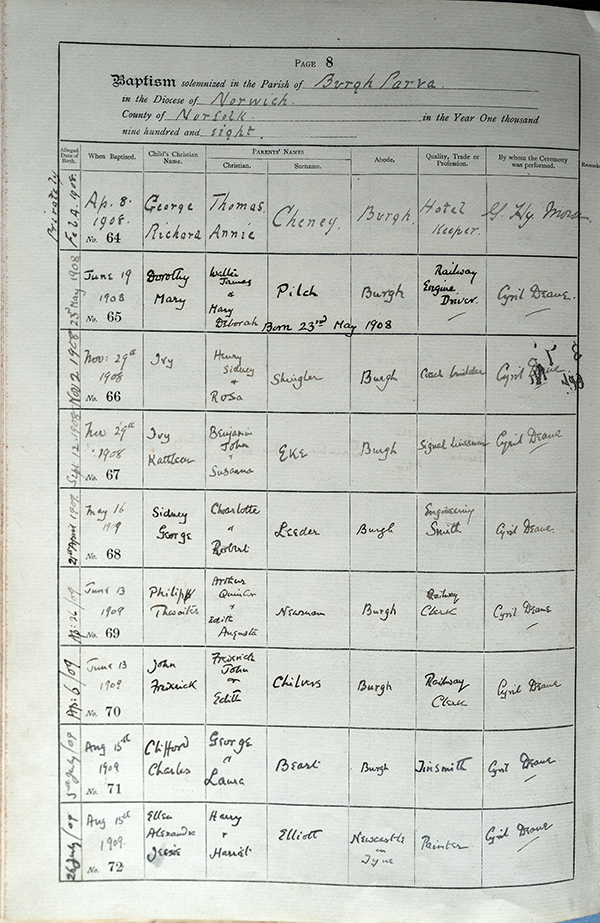 PAGE 8
Baptism solemnized in the Parish of Burgh Parva
in the Diocese of Norwich.
County of Norfolk. in the Year One thousand
nine hundred and eight.
Alleged Date of Birth.
When Baptised.
Child's Christian Name.
PARENTS' NAMES
Christian.
Surname.
Abode.
Quality, Trade or Profession.
By whom the Ceremony was performed.
Remarks
Privately
Feb. 4. 1908.
Ap. 8.
1908.
No. 64
George
Richard
Thomas
Annie
Cheney.
Burgh.
Hotel
Keeper.
G. Hy. Morse
23rd May 1908
June 19
1908
No. 65
Dorothy
Mary
Walter
James
&
Mary
Deborah
Pilch
Born 23rd May 1908
Burgh
Railway
Engine
Driver.
Cyril Deane.
Nov 2. 1908
Nov: 29th
1908
No. 66
Ivy
Henry
Sidney
&
Rosa
Shingler
Burgh
Coach builder
Cyril Deane
Sept 12. 1908
Nov 29th
1908
No. 67
Ivy
Kathleen
Benjamin
John
&
Susanna
Eke
Burgh
Signal Linesman
Cyril Deane
21st April 1909
May 16
1909
No. 68
Sidney
George
Charlotte
&
Robert
Leeder
Burgh
Engineering
Smith
Cyril Deane.
Ap: 26/09
June 13
1909
No. 69
Philip
Thwaites
Arthur
Quinton
&
Edith
Augusta
Newman
Burgh
Railway
Clerk
Cyril Deane
Ap: 6/09
June 13
1909
No. 70
John
Frederick
Frederick
John
&
Edith
Chilvers
Burgh
Railway
Clerk
Cyril Deane
July/09
Aug 15th
1909
No. 71
Clifford
Charles
George
&
Laura
Beart
Burgh
Tinsmith
Cyril Deane
26 July/09
Aug 15th
1909.
No. 72
Ellen
Alexandra
Jessie
Harry
&
Harriet
Elliott
Newcastle
on
Tyne
Painter
Cyril Deane